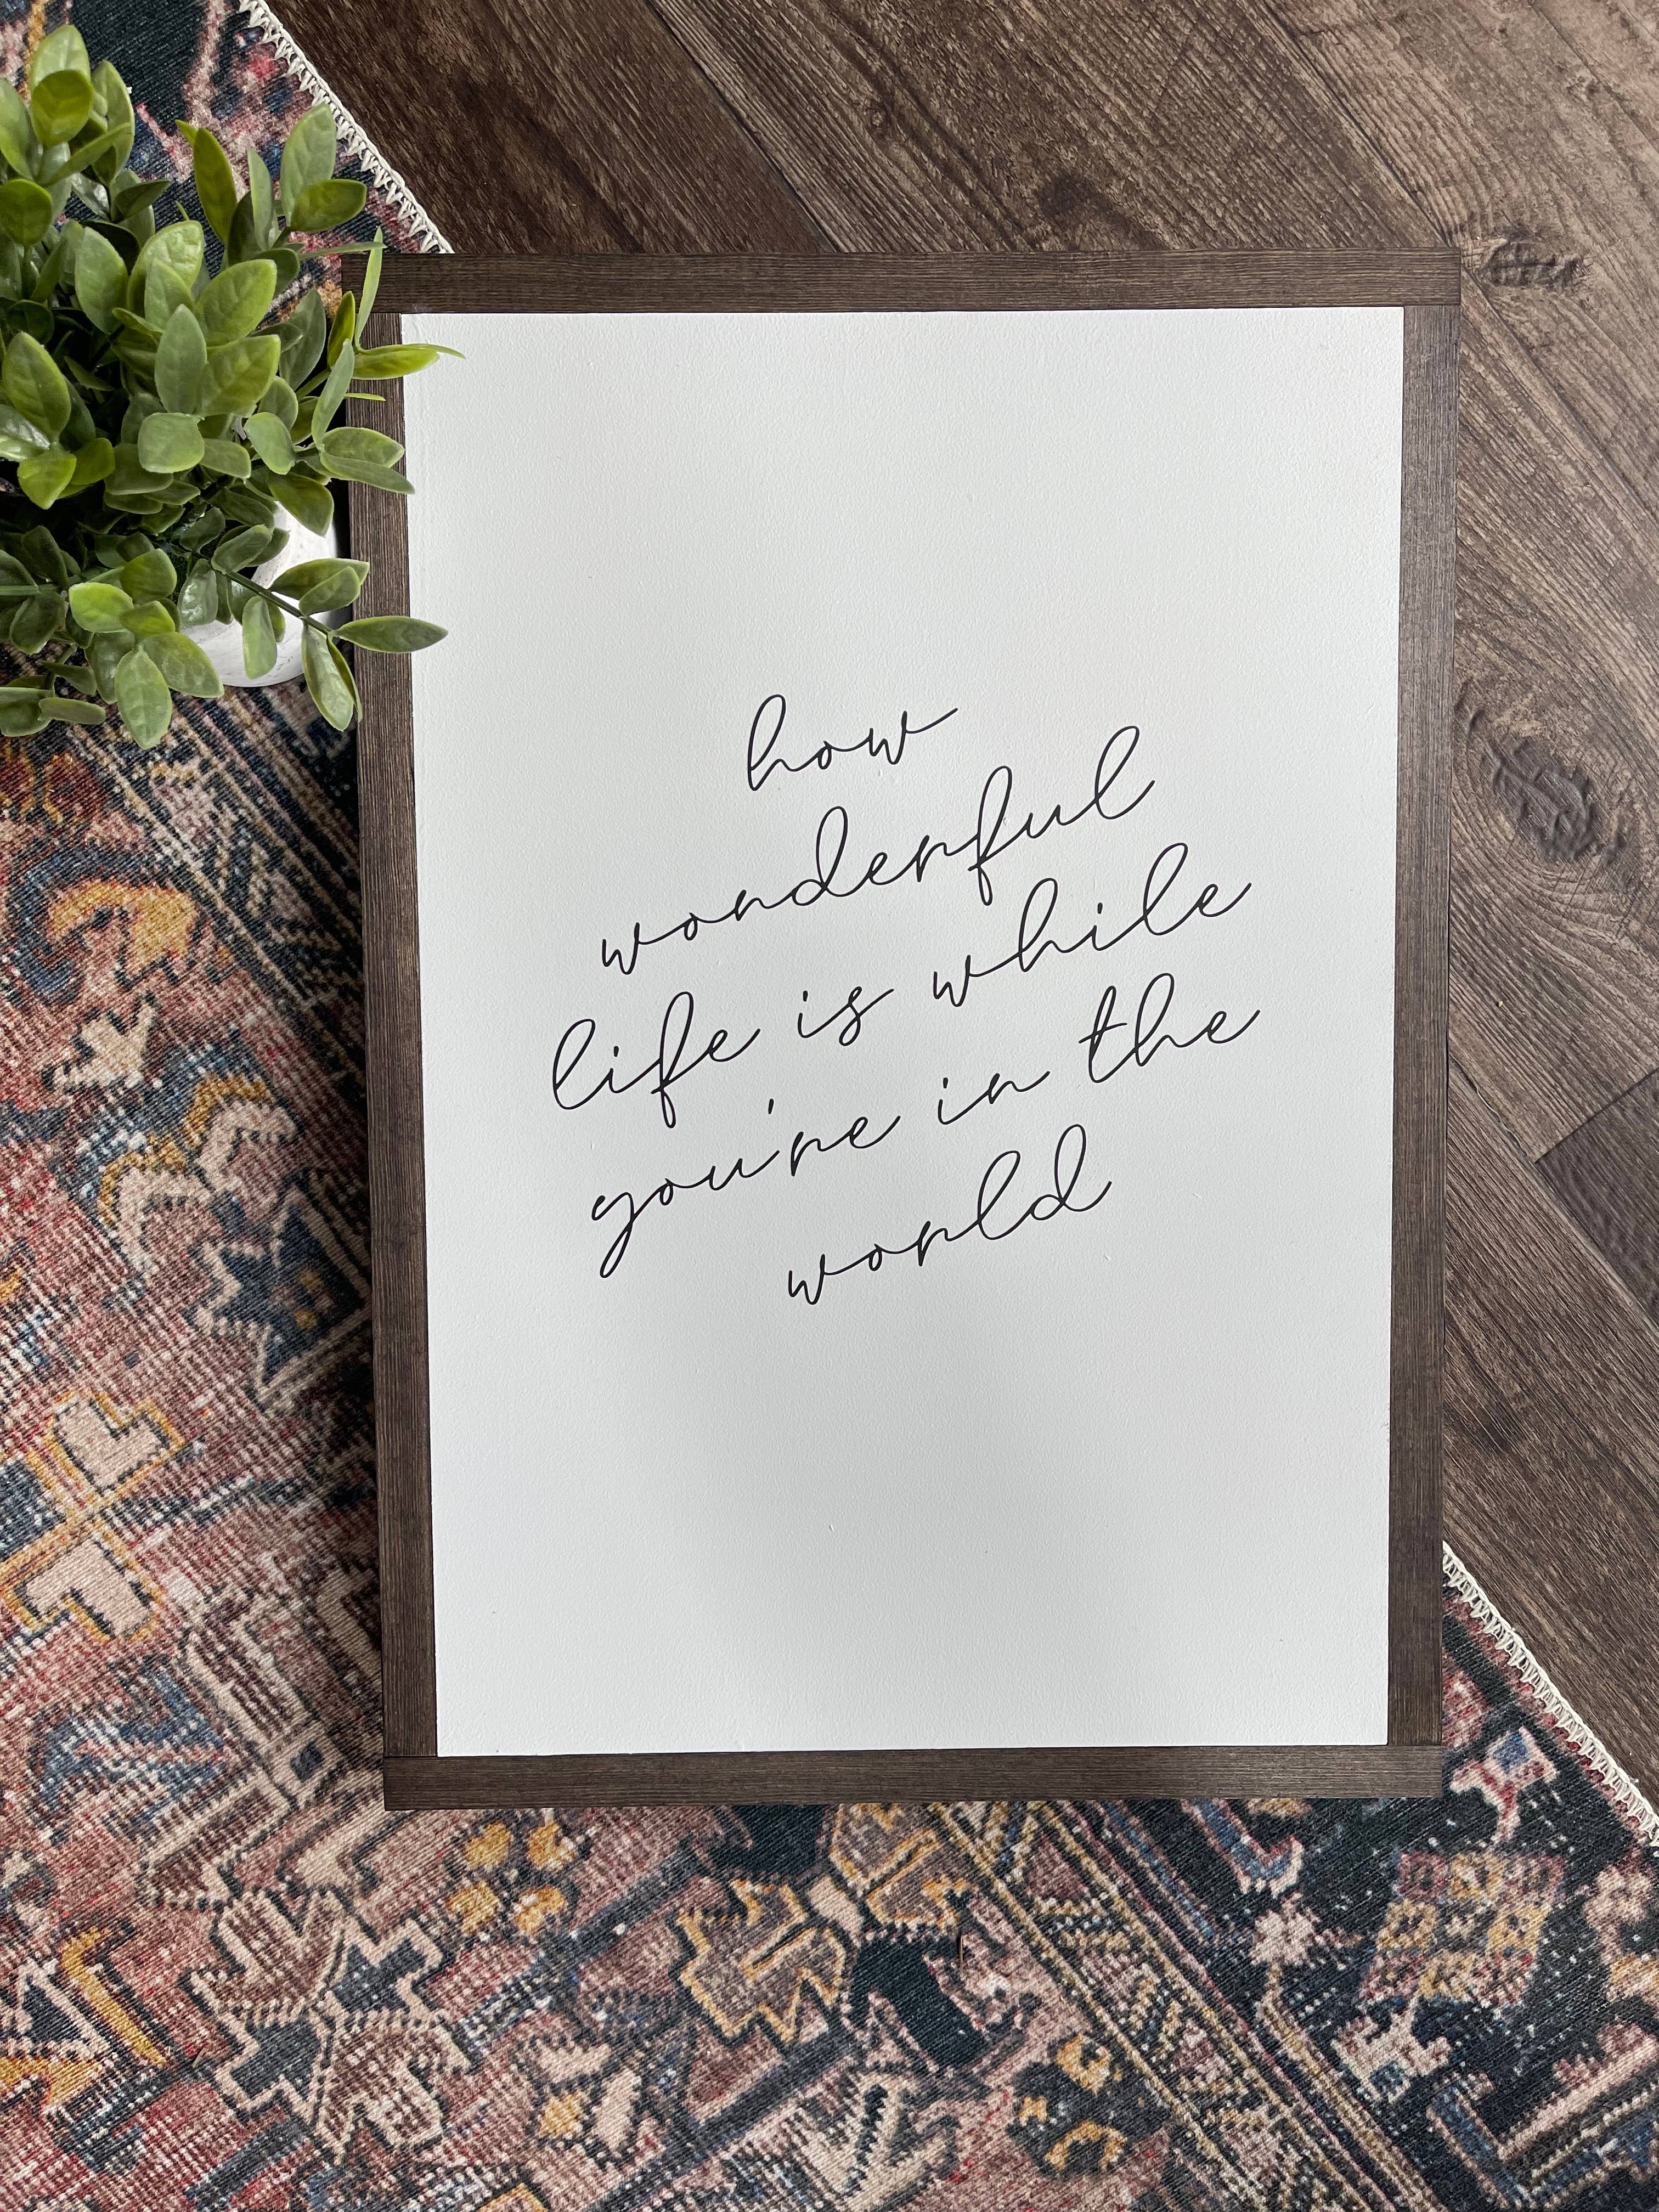 how
wonderful
life is while
you're in the
world